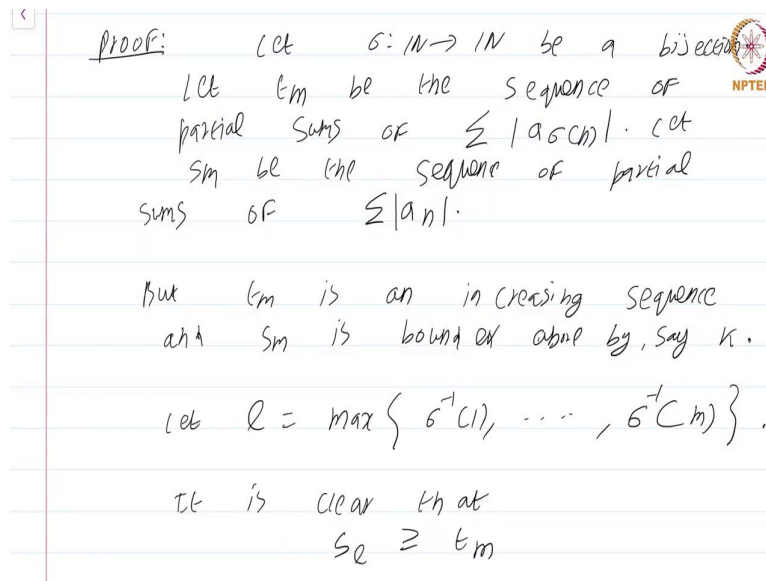 Proof: Let σ: IN → IN be a bijection
NPTEL
Let tm be the sequence of
partial sums of Σ |aσ(n)|. Let
Sm be the sequence of partial
sums of Σ|an|.
But tm is an increasing sequence
and Sm is bounded above by, say K.
Let l = max { σ⁻¹(1), ...., σ⁻¹(m) }.
It is clear that
Sl ≥ tm